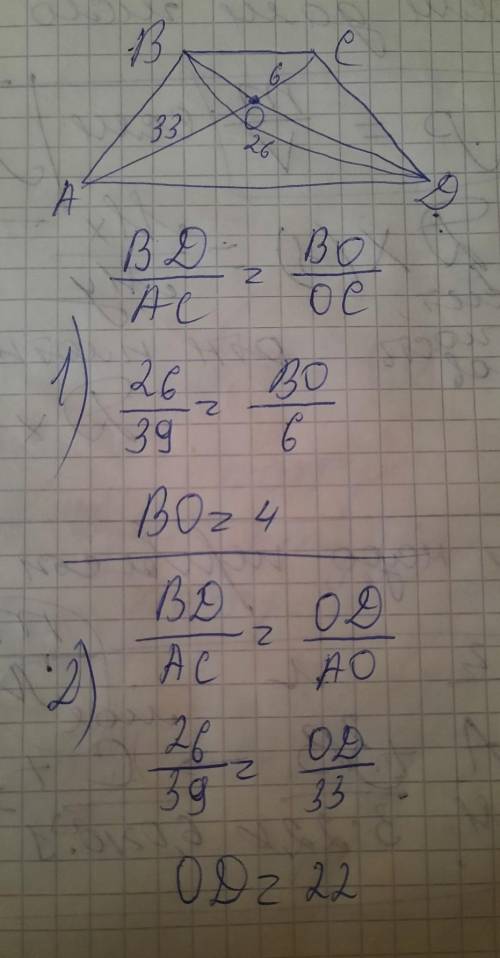 B C
6
33 O
26
A D
BD/AC = BO/OC
1) 26/39 = BO/6
BO = 4
BD/AC = OD/AO
2) 26/39 = OD/33
OD = 22